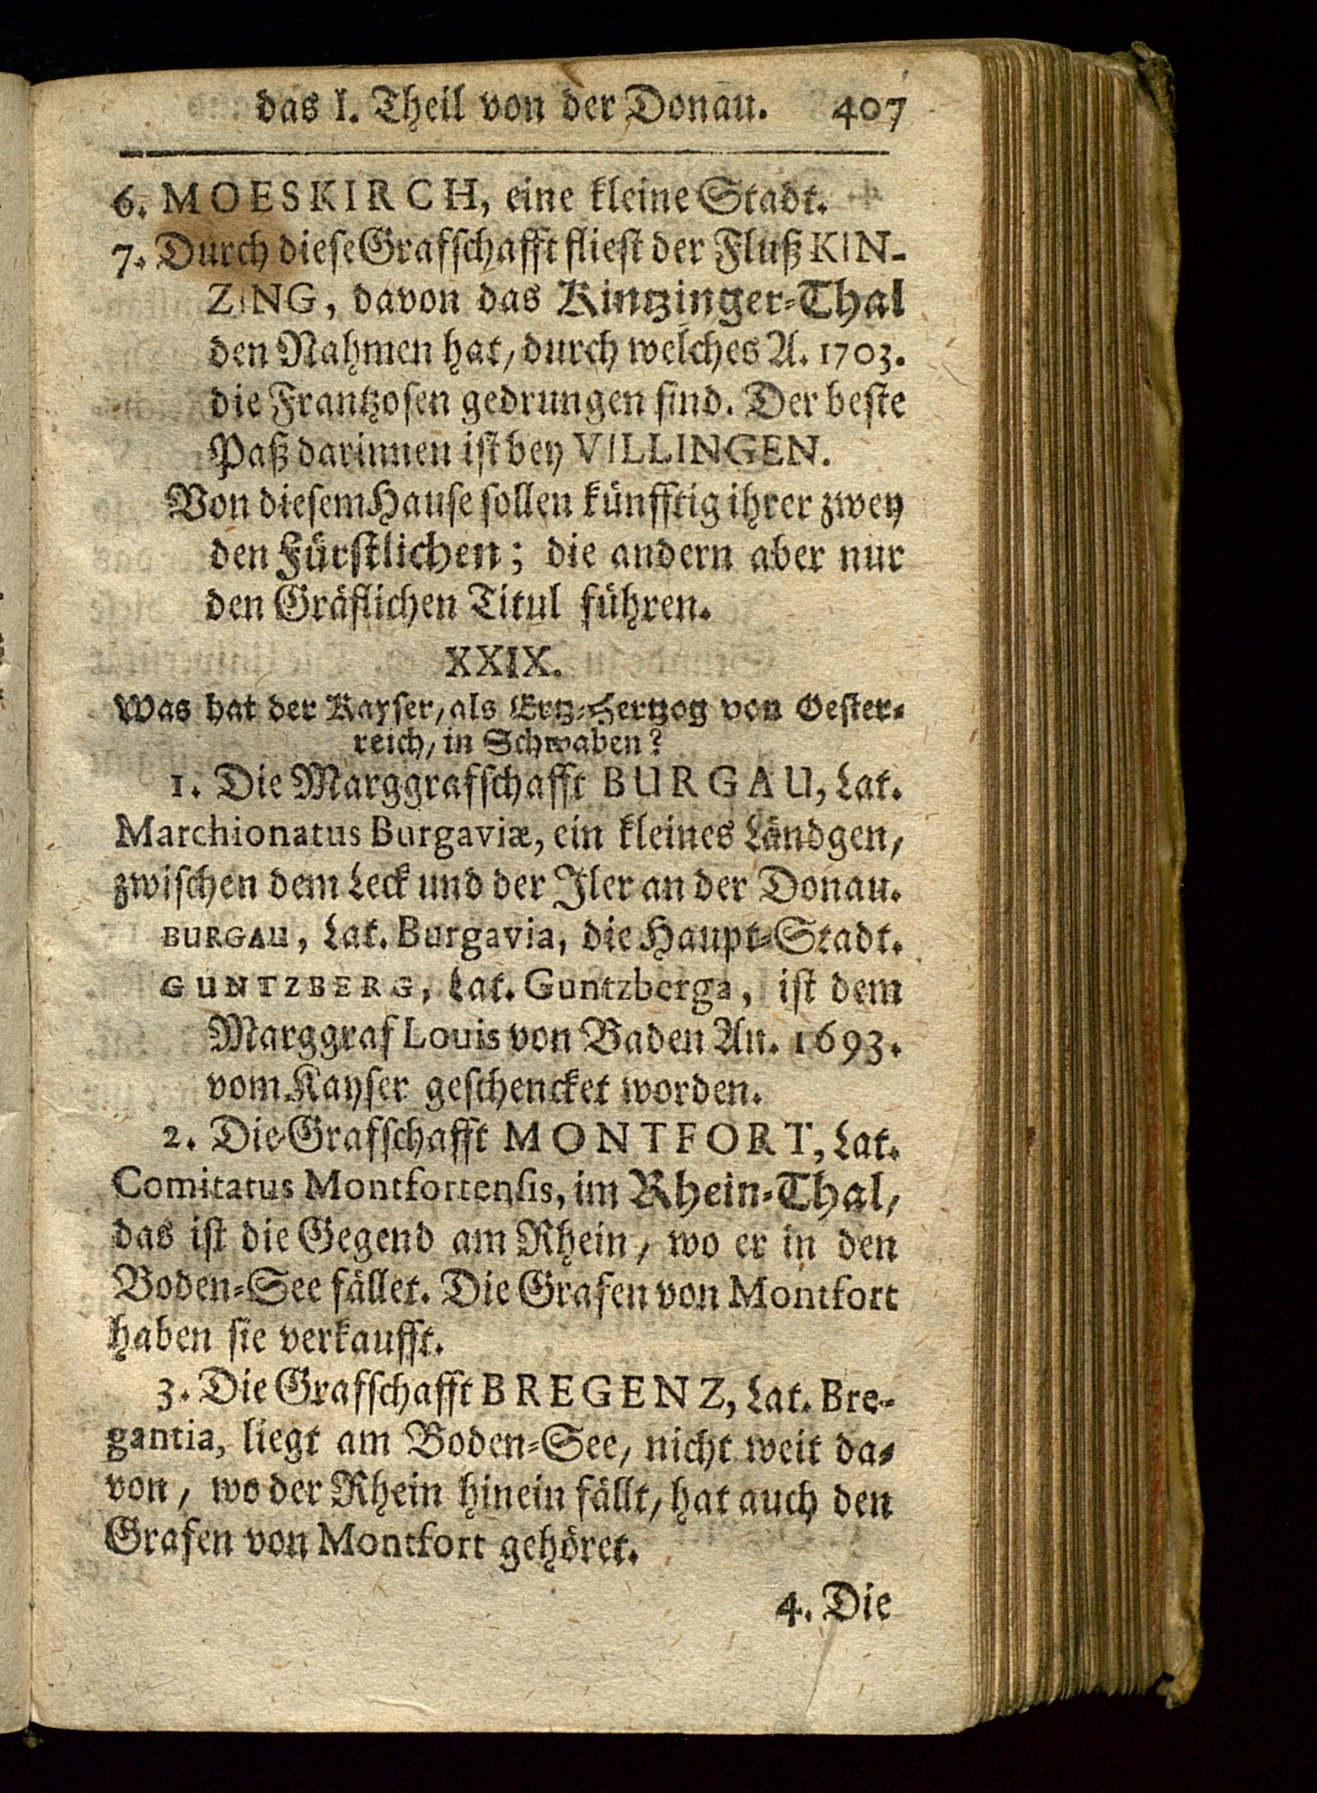 das I. Theil von der Donau. 407
6. MOESKIRCH, eine kleine Stadt.
7. Durch diese Grafschafft fliest der Fluß KIN-
ZING, davon das Kintzinger-Thal
den Nahmen hat, durch welches A. 1703.
die Frantzosen gedrungen sind. Der beste
Paß darinnen ist bey VILLINGEN.
Von diesem Hause sollen künfftig ihrer zwey
den Fürstlichen; die andern aber nur
den Gräflichen Titul führen.
XXIX.
Was hat der Kayser, als Ertz-Hertzog von Oester-
reich, in Schwaben?
1. Die Marggrafschafft BURGAU, Lat.
Marchionatus Burgaviæ, ein kleines Ländgen,
zwischen dem Leck und der Iler an der Donau.
BURGAU, Lat. Burgavia, die Haupt-Stadt.
GUNTZBERG, Lat. Guntzberga, ist dem
Marggraf Louis von Baden An. 1693.
vom Kayser geschencket worden.
2. Die Grafschafft MONTFORT, Lat.
Comitatus Montfortensis, im Rhein-Thal,
das ist die Gegend am Rhein, wo er in den
Boden-See fället. Die Grafen von Montfort
haben sie verkaufft.
3. Die Grafschafft BREGENZ, Lat. Bre-
gantia, liegt am Boden-See, nicht weit da-
von, wo der Rhein hinein fällt, hat auch den
Grafen von Montfort gehöret.
4. Die